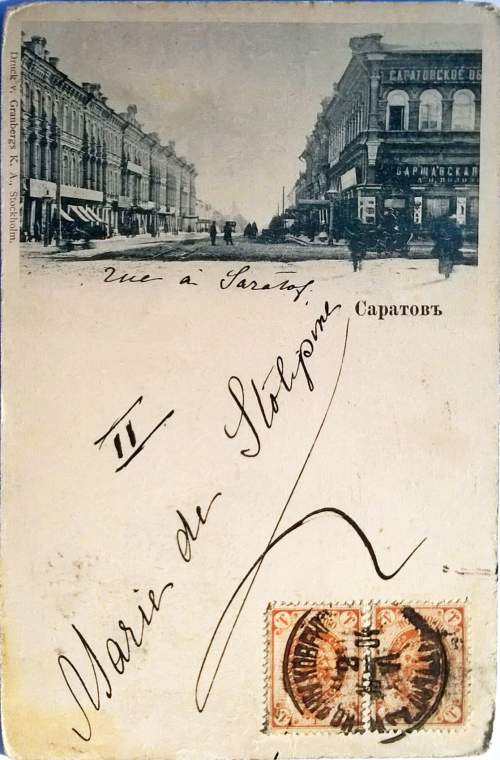 Druck v. Granbergs K. A., Stockholm.
САРАТОВСКОЕ ОБ
ВАРШАВСКАЯ
rue à Saratof
Саратовъ
II
Marie de Stolipine
1
1
1
1